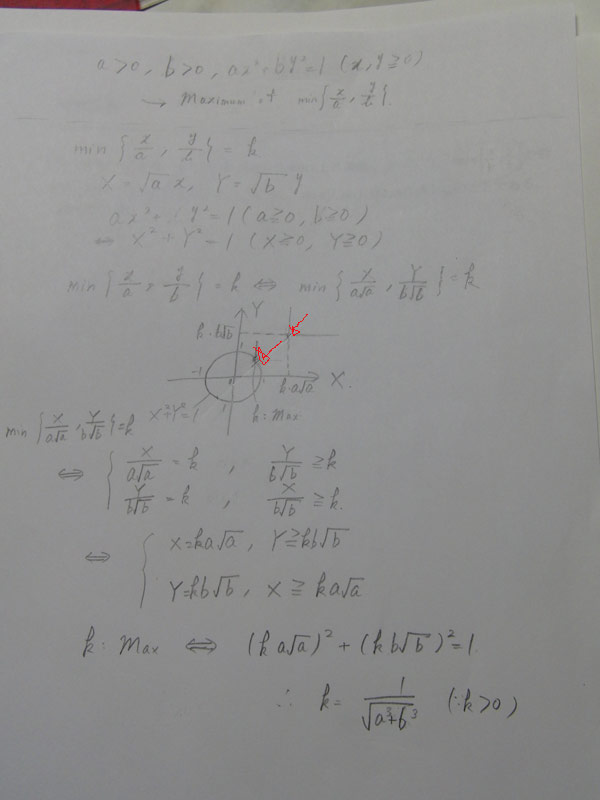 a>0, b>0, ax²+by²=1 (x,y≧0)
→ Maximum of min{x/a, y/b}.
min {x/a, y/b} = k
X=√a x, Y=√b y
ax²+ y²=1 (a≧0, b≧0)
⇔ X²+Y²=1 (X≧0, Y≧0)
min {x/a, y/b} = k ⇔ min {X/a√a, Y/b√b} = k
Y
k·b√b
1
-1
k·a√a
X.
X²+Y²=1
k: Max
min {X/a√a, Y/b√b}=k
⇔ { X/a√a = k , Y/b√b ≧k
Y/b√b = k , X/b√b ≧k.
⇔ { X=ka√a, Y≧kb√b
Y=kb√b, X ≧ ka√a
k: Max ⇔ (ka√a)²+(kb√b)²=1.
∴ k= 1/√a³+b³ (∵k>0)